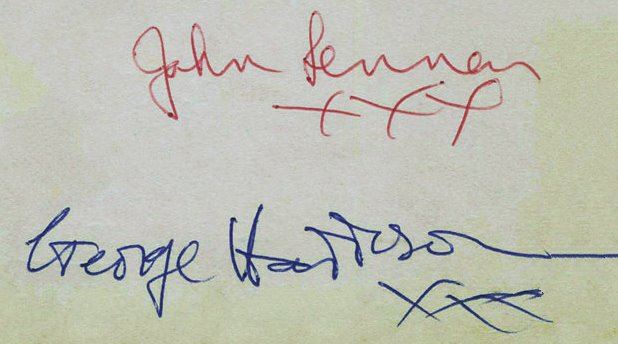 John Lennon
xxx
George Harrison
xxx